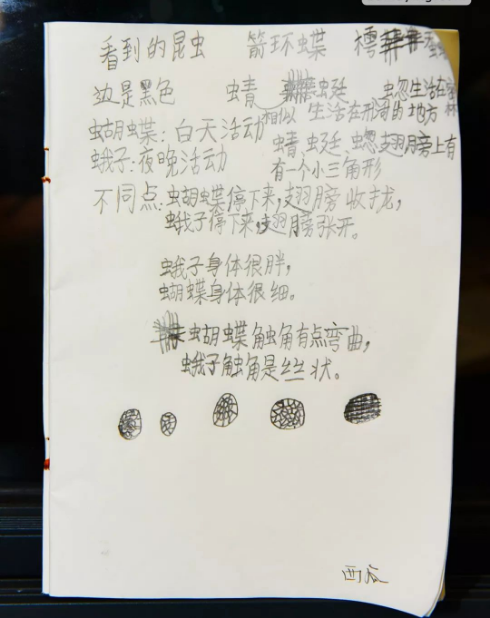 看到的昆虫 箭环蝶
边是黑色 蜻 蜓 生活在
相似 生活在 的地方
蝴蝶：白天活动 蜻蜓、 翅膀上有
蛾子：夜晚活动 有一个小三角形
不同点：蝴蝶停下来，翅膀收拢，
蛾子停下来，翅膀张开。
蛾子身体很胖，
蝴蝶身体很细。
蝴蝶触角有点弯曲，
蛾子触角是丝状。
西瓜